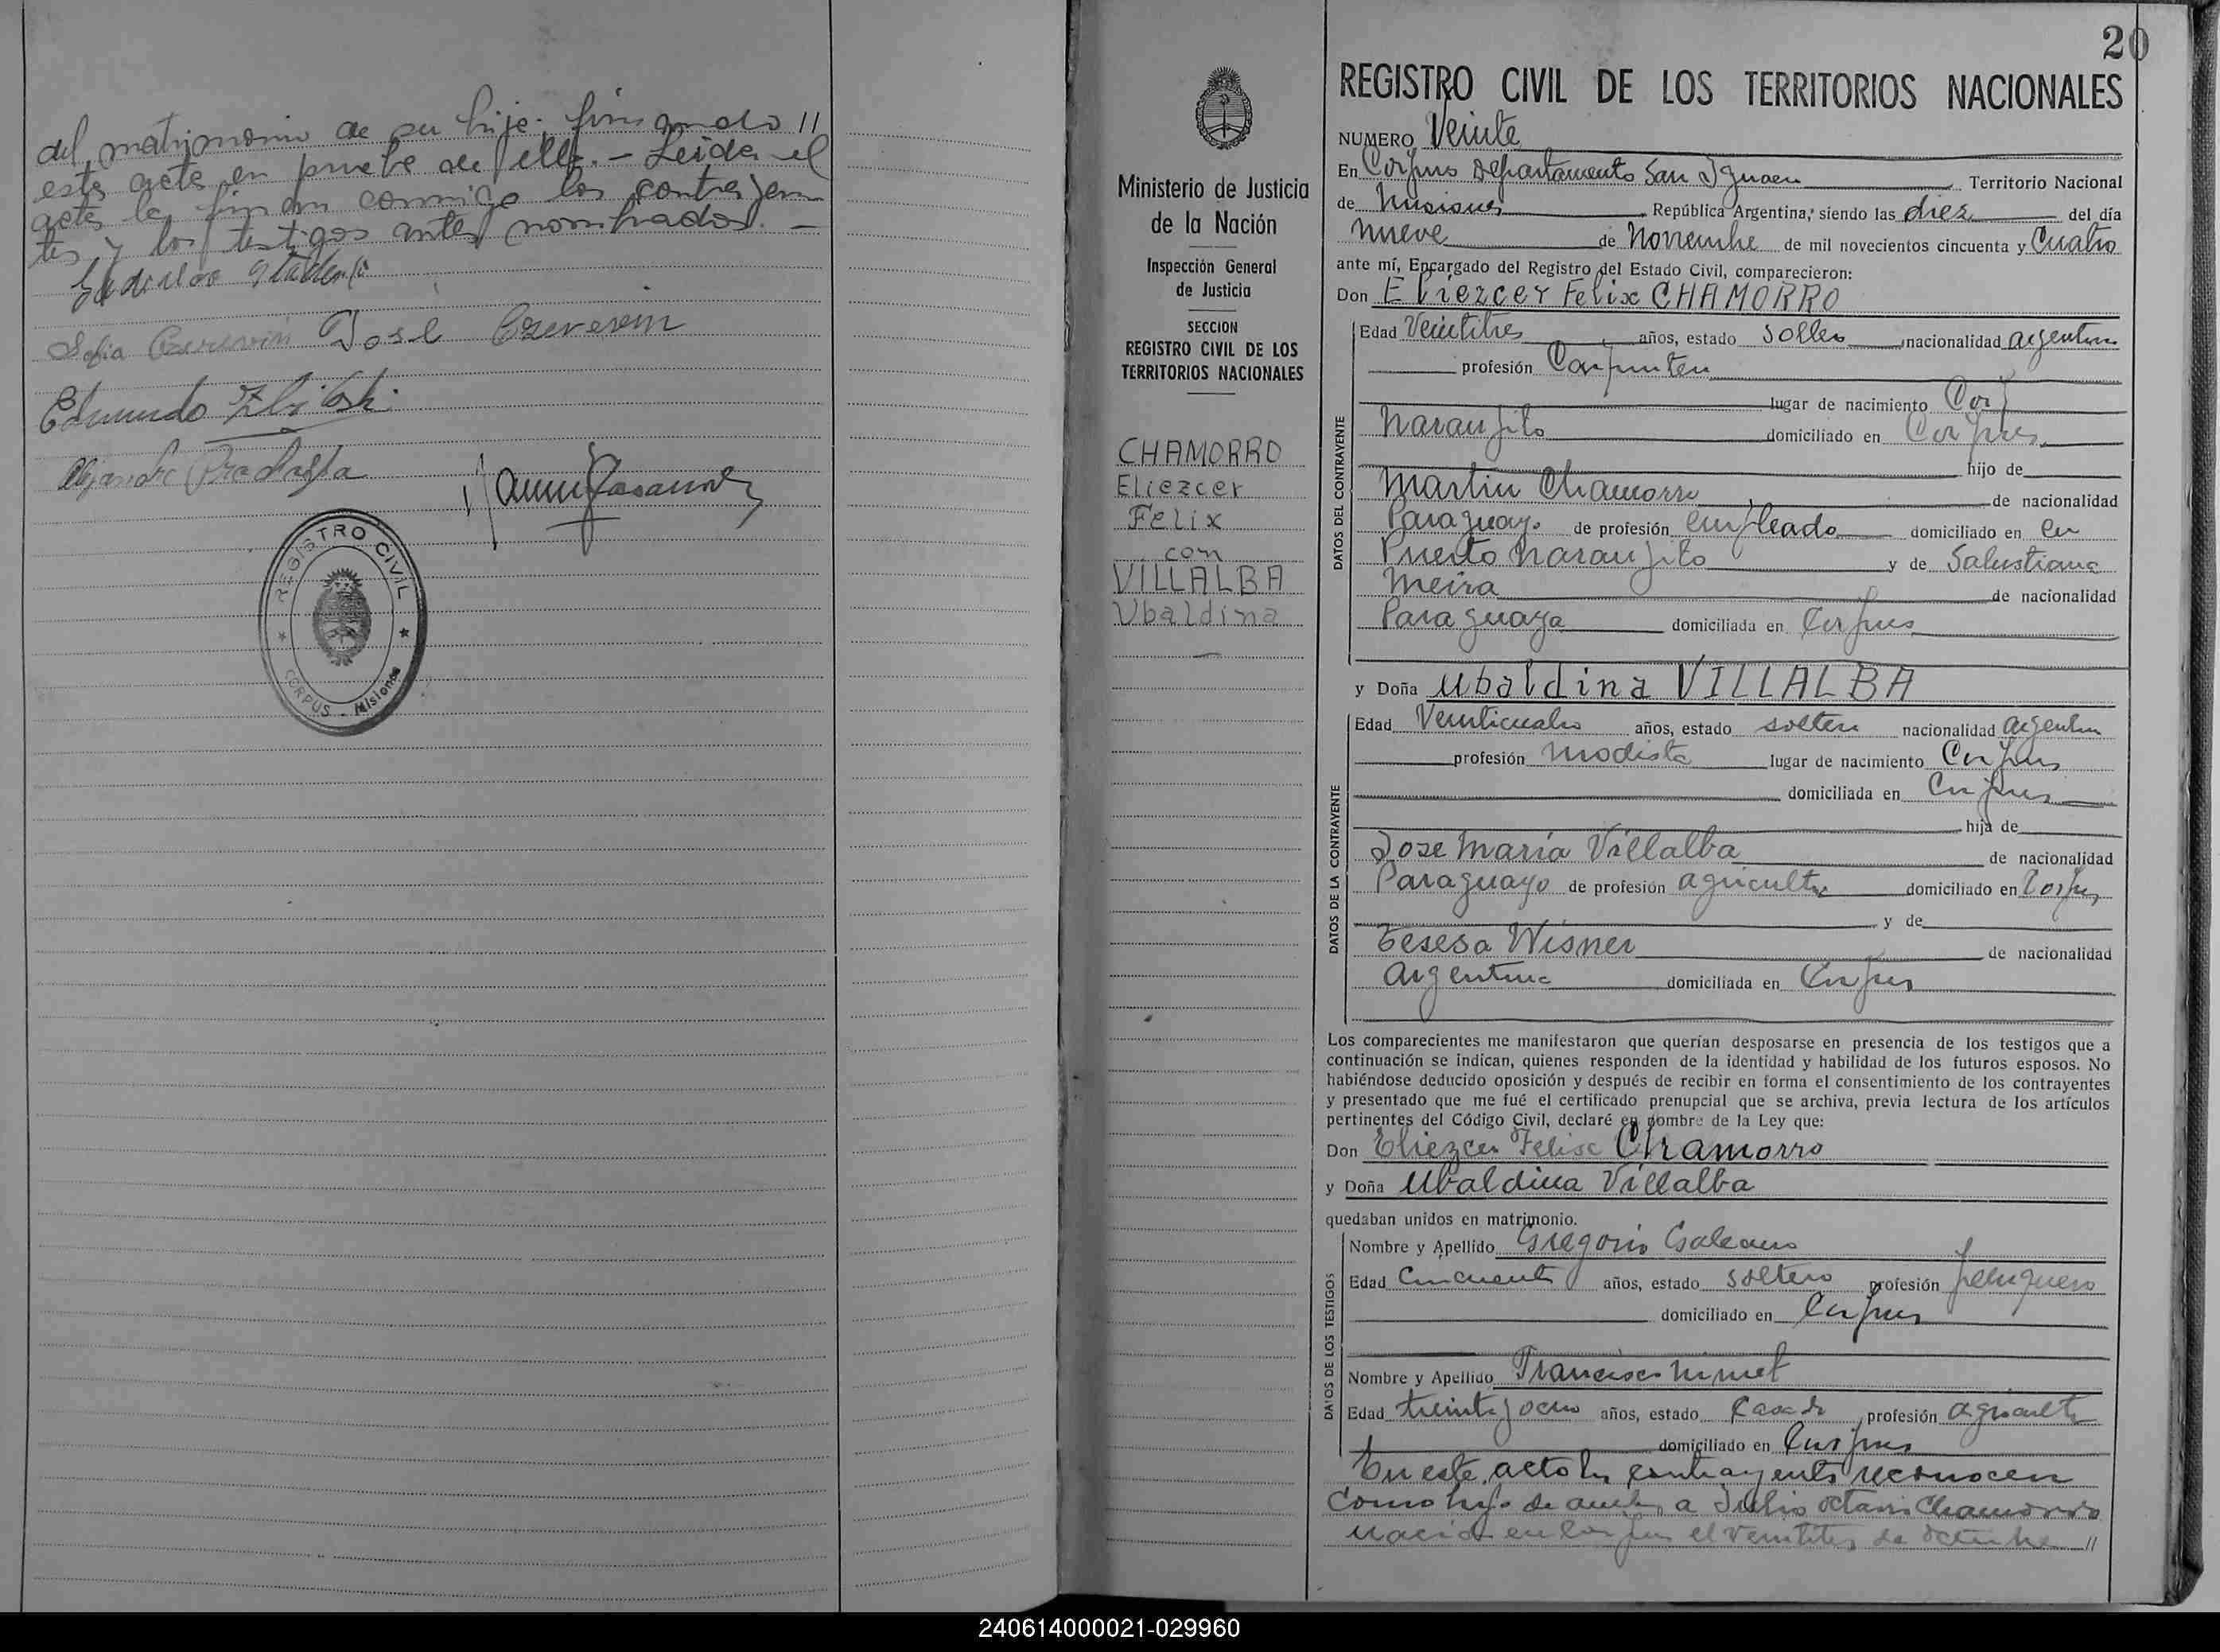 del matrimonio de su hija. firmando //
este acta en prueba de ello. - Leida el
acta la firman conmigo los contrayen
tes y los testigos antes nombrados. -
Sofia Czerevin José Czereven
Edmundo
Alejandro
REGISTRO CIVIL
CORPUS - Misiones
20
Ministerio de Justicia
de la Nación
Inspección General
de Justicia
SECCION
REGISTRO CIVIL DE LOS
TERRITORIOS NACIONALES
CHAMORRO
Eliezcer
Felix
con
VILLALBA
Ubaldina
REGISTRO CIVIL DE LOS TERRITORIOS NACIONALES
NUMERO Veinte
En Corpus Departamento San Ignacio Territorio Nacional
de Misiones República Argentina, siendo las diez del día
nueve de Noviembre de mil novecientos cincuenta y Cuatro
ante mí, Encargado del Registro del Estado Civil, comparecieron:
Don Eliezcer Felix CHAMORRO
DATOS DEL CONTRAYENTE
Edad Veintitres años, estado Soltero nacionalidad argentino
profesión Carpintero
lugar de nacimiento Corp
Naranjito domiciliado en Corpus
hijo de
Martin Chamorro de nacionalidad
Paraguayo de profesión empleado domiciliado en en
Puerto Naranjito y de Salustiana
Meira de nacionalidad
Paraguaya domiciliada en Corpus
y Doña Ubaldina VILLALBA
DATOS DE LA CONTRAYENTE
Edad Veinticuatro años, estado soltera nacionalidad argentina
profesión Modista lugar de nacimiento Corpus
domiciliada en Corpus
hija de
Jose Maria Villalba de nacionalidad
Paraguayo de profesión agricultor domiciliado en Corpus
y de
Teresa Wisner de nacionalidad
Argentina domiciliada en Corpus
Los comparecientes me manifestaron que querían desposarse en presencia de los testigos que a
continuación se indican, quienes responden de la identidad y habilidad de los futuros esposos. No
habiéndose deducido oposición y después de recibir en forma el consentimiento de los contrayentes
y presentado que me fué el certificado prenupcial que se archiva, previa lectura de los artículos
pertinentes del Código Civil, declaré en nombre de la Ley que:
Don Eliezcer Felix Chamorro
y Doña Ubaldina Villalba
quedaban unidos en matrimonio.
DATOS DE LOS TESTIGOS
Nombre y Apellido Gregorio Galeano
Edad Cincuenta años, estado soltero profesión peluquero
domiciliado en Corpus
Nombre y Apellido Francisco
Edad treinta y ocho años, estado Casado profesión agricultor
domiciliado en Corpus
En este acto los contrayentes reconocen
como hijo de ambos a Julio Octavio Chamorro
nacido en Corpus el veintitres de octubre //
240614000021-029960